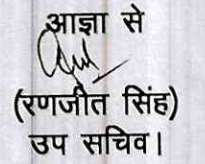 आज्ञा से
(रणजीत सिंह)
उप सचिव।